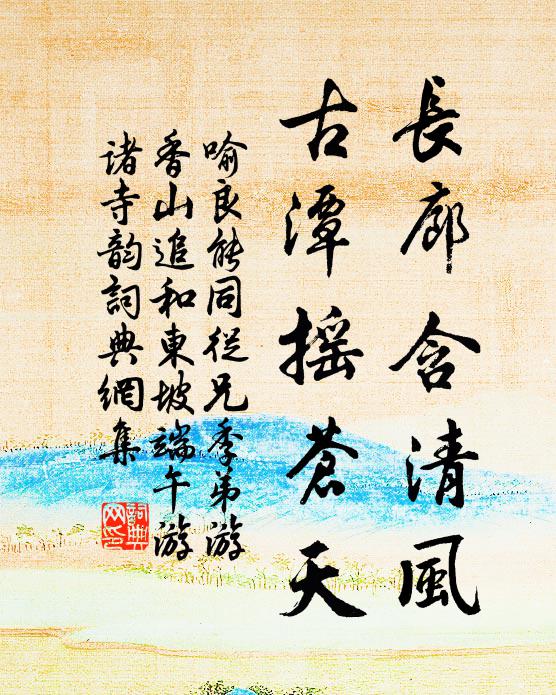 長廊含清風
古潭摇蒼天
喻良能同從兄季弟游
香山追和東坡端午游
諸寺韵詞典網集